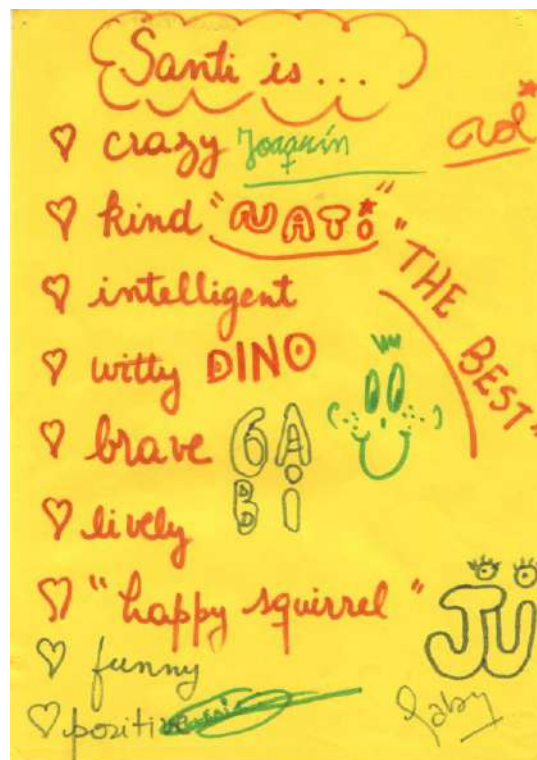 Santi is...
♡ crazy Joaquín
♡ kind "NATi"
"THE BEST"
♡ intelligent
♡ witty DINO
♡ brave GABi
♡ lively
♡ "happy squirrel"
JU
♡ funny
♡ positive
Gaby